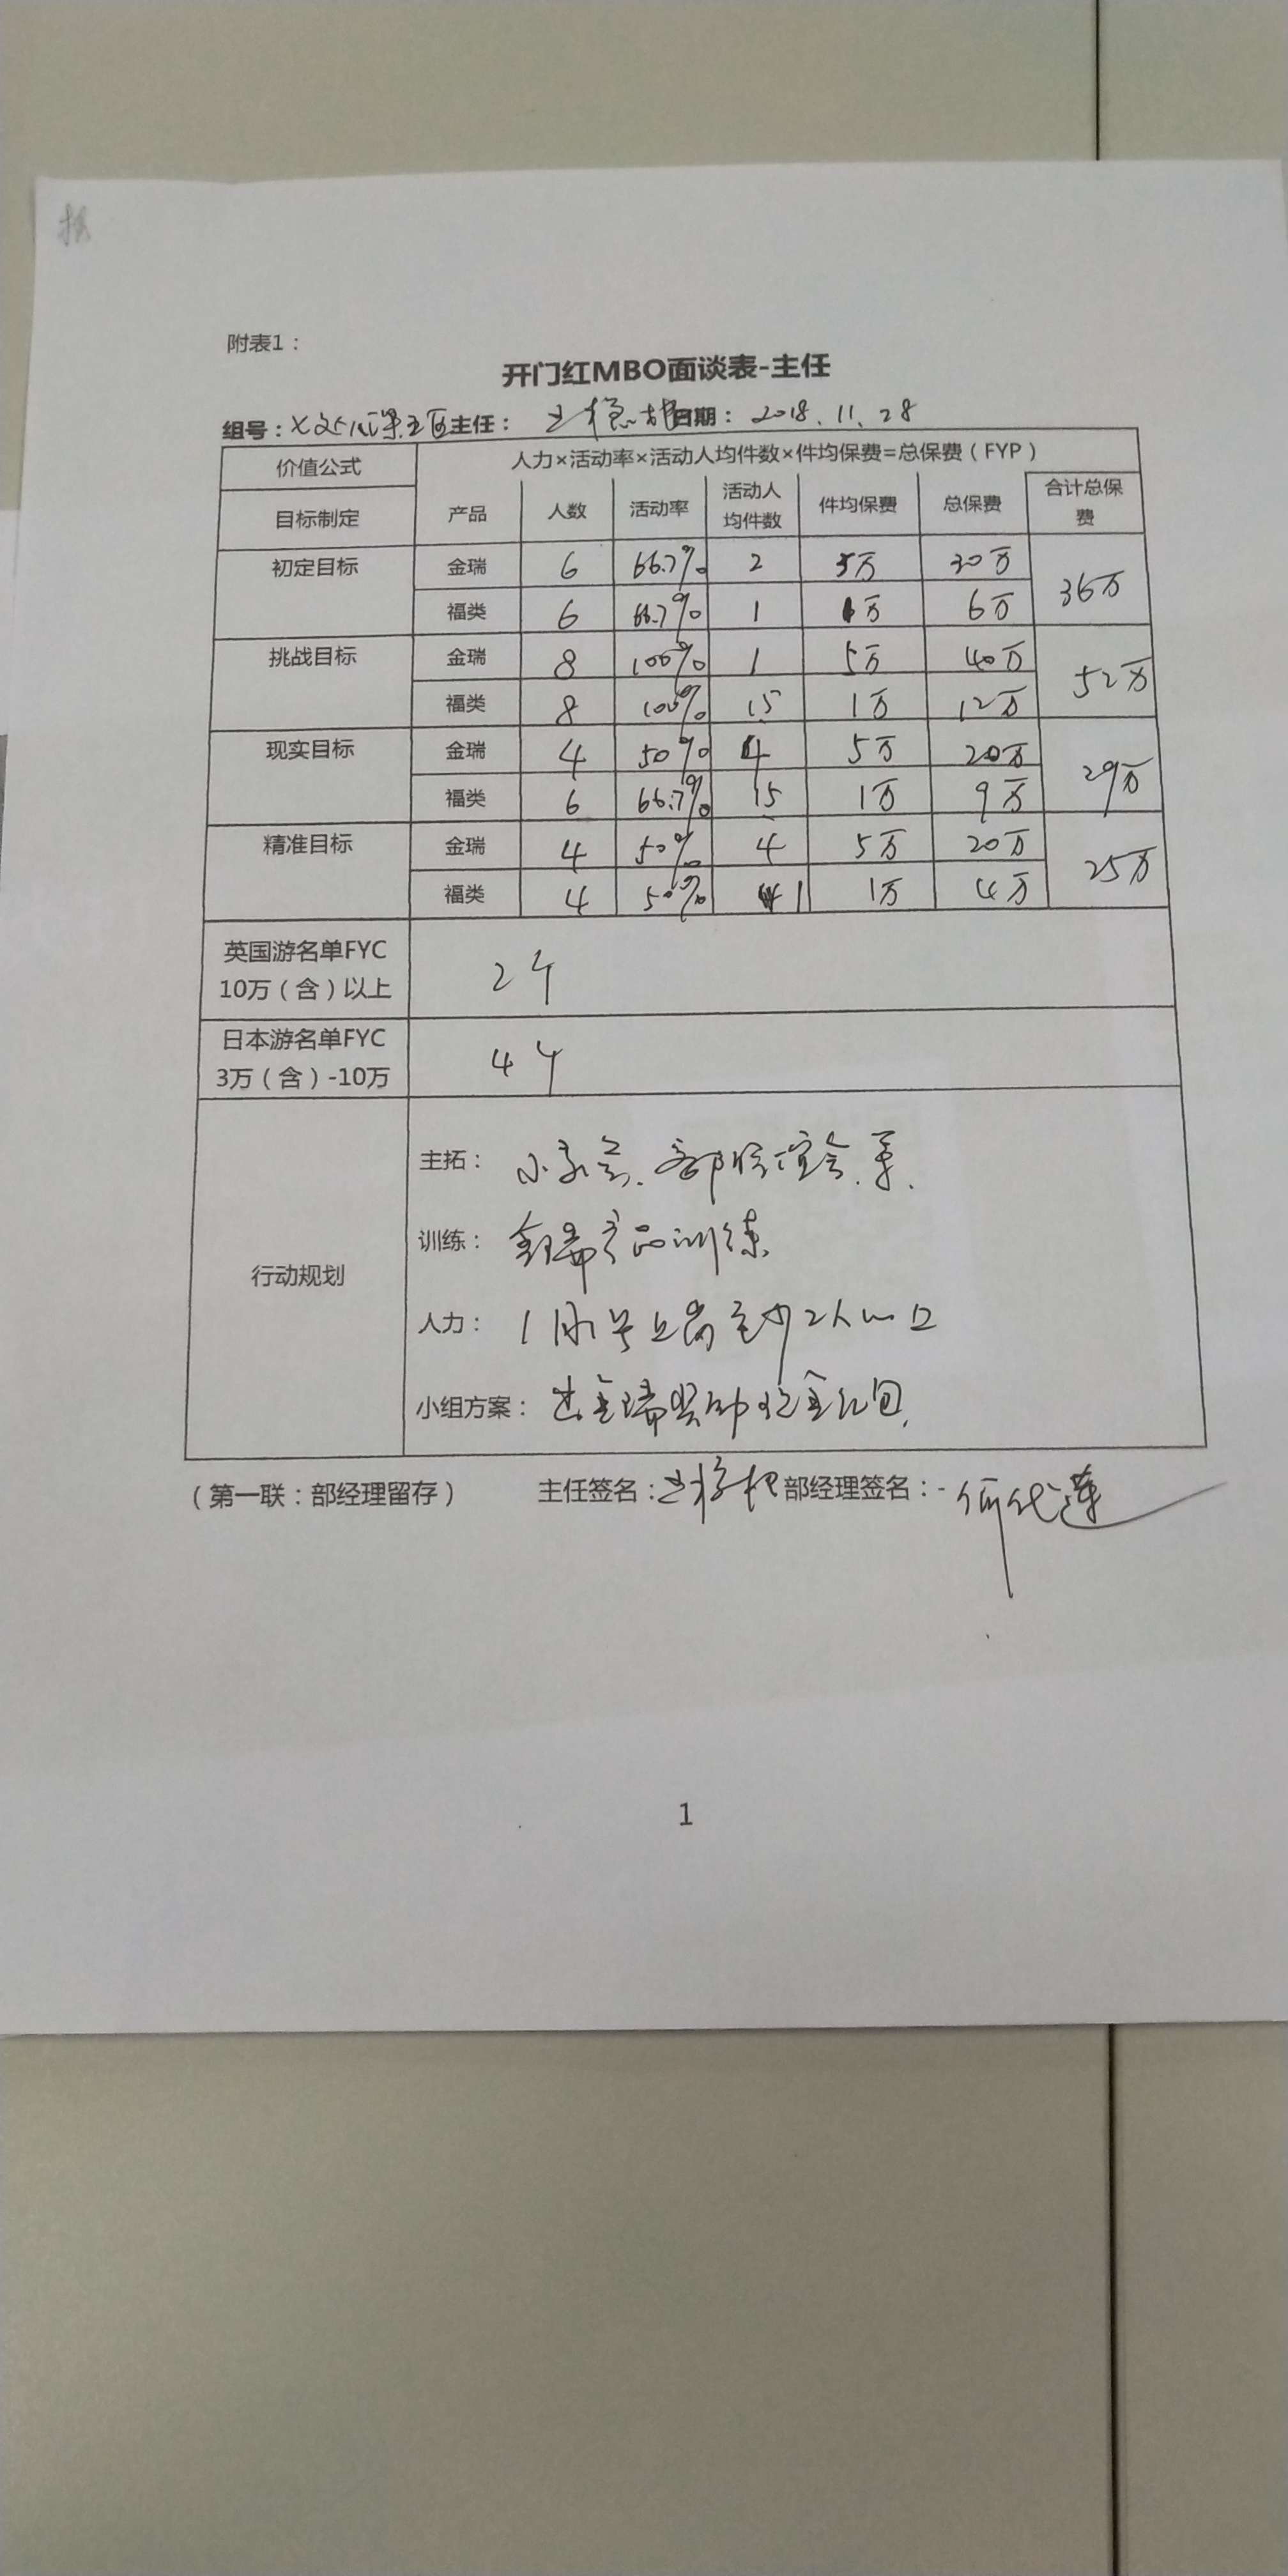 附表1：
开门红MBO面谈表-主任
组号： 主任： 日期：2018.11.28
价值公式 人力×活动率×活动人均件数×件均保费=总保费（FYP）
目标制定 产品 人数 活动率 活动人均件数 件均保费 总保费 合计总保费
初定目标 金瑞 6 66.7% 2 5万 30万 36万
福类 6 66.7% 1 1万 6万
挑战目标 金瑞 8 100% 1 5万 40万 52万
福类 8 100% 1.5 1万 12万
现实目标 金瑞 4 50% 4 5万 20万 29万
福类 6 66.7% 1.5 1万 9万
精准目标 金瑞 4 50% 4 5万 20万 25万
福类 4 50% 1 1万 4万
英国游名单FYC
10万（含）以上 2个
日本游名单FYC
3万（含）-10万 4个
行动规划
主拓：
训练：金瑞产品训练
人力：
小组方案：
（第一联：部经理留存） 主任签名： 部经理签名：何代莲
1